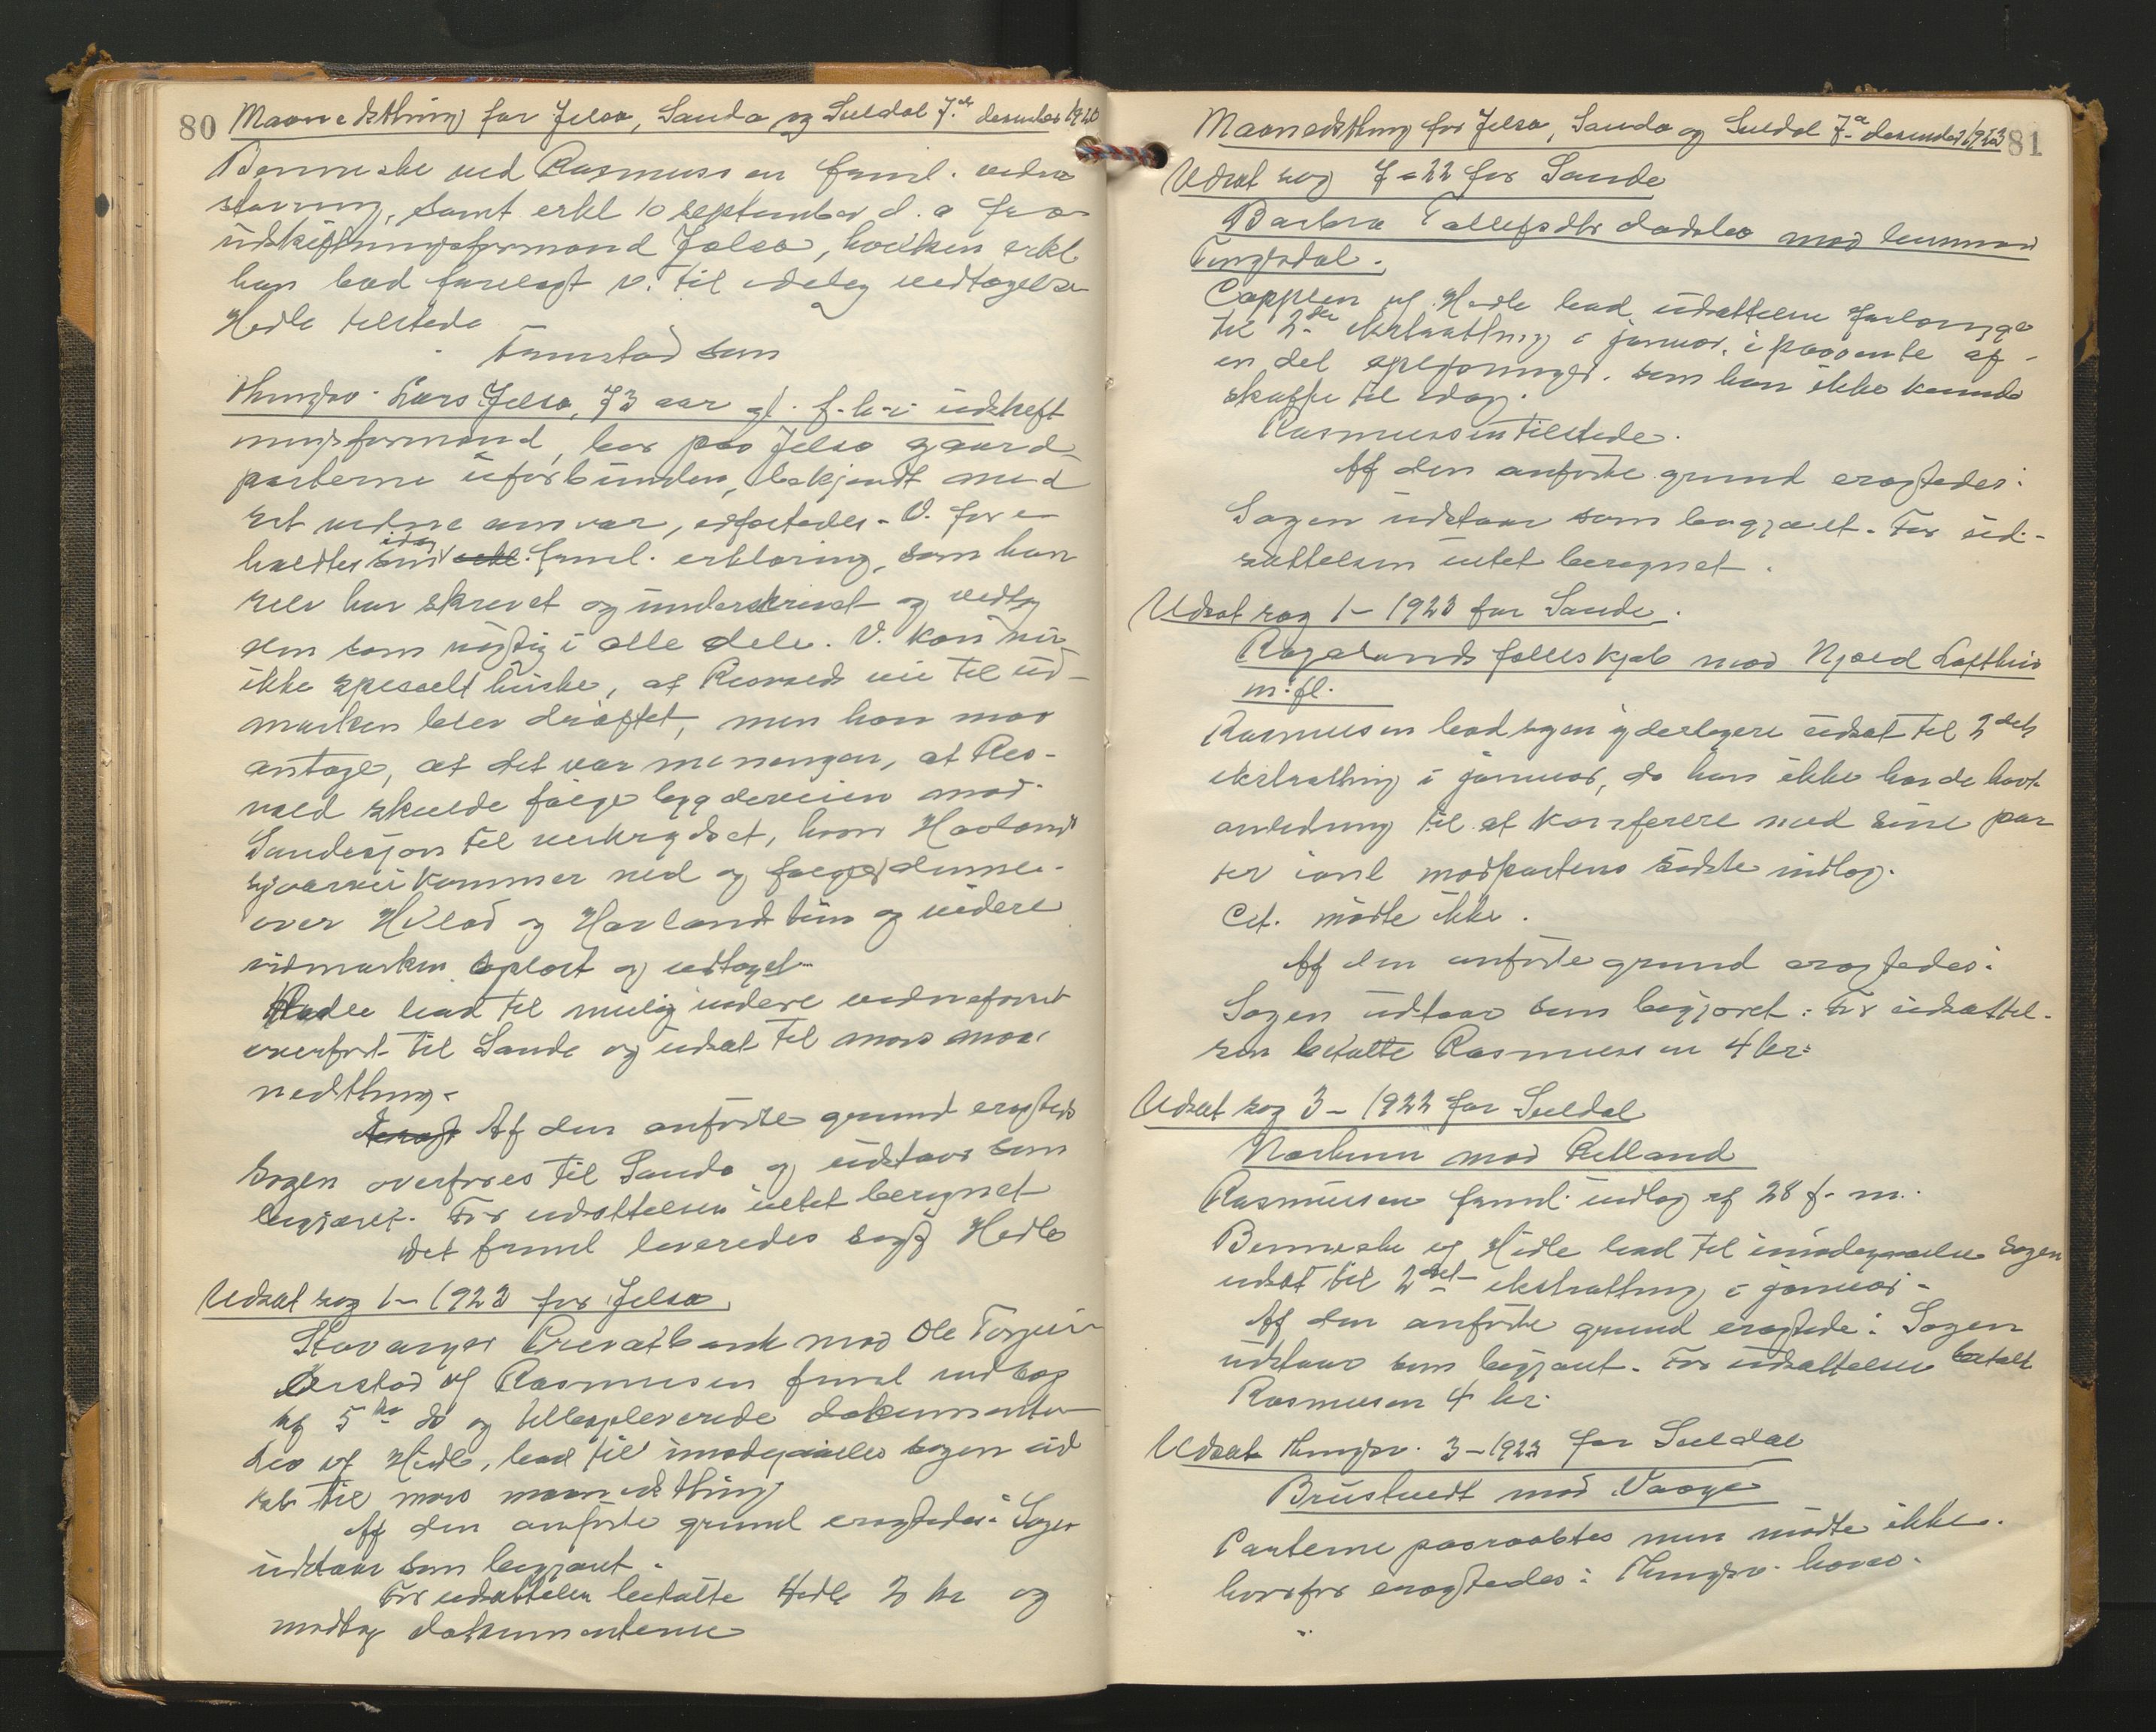 80 Maanedsthing for Jelsa, Sauda og Suldal 7de desember 1923
Benneche ved Rasmussen freml. vidne
stævning, samt erkl 10 september d. a fra
udskiftningsformand Jelsa, hvilken erkl
han bad forelagt v. til edelig vedtagelse
Hidle tilstede
Fremstod som
thingsv. Lars Jelsa, 73 aar gl. f. h. i udskift
ningsformand, bor paa Jelsa gaard
parterne uforbunden, bekjendt med
sit vidne ansvar, edfæstedes. V. fore
holdtes sin idag erkl. freml. erklæring, som han
selv har skrevet og underskrevet og vedtog
den som rigtig i alle dele. V. kan nu
ikke specielt huske, at Røsvolds vei til ud-
marken blev drøftet, men han maa
antage, at det var meningen, at Røs-
vold skulde følge bygdeveien mod
Sandesjøen til veikrydset, hvor Hovland
kommer ned og følge denne
over og Hovlands tun og videre
udmarken. Oplæst og vedtaget
Hidle bad til mulig videre vidneførsel
overført til Sauda og udsat til næste maa-
nedsthing.
Af den anførte grund eragtedes
Sagen overføres til Sauda og udstaar som
begjæret. For udsættelsen intet beregnet
Det freml leveredes sagf Hidle
Udsat sag 1 - 1923 for Jelsa
Stavanger Privatbank mod Ole Torgeir
Ørstad vf Rasmussen freml indlæg
af 5te ds og tilbageleverede dokumenter
vf Hidle, bad til imødegaaelse sagen ud
sat til næste maanedsthing
Af den anførte grund eragtedes: Sagen
udstaar som begjæret.
For udsættelsen betalte Hidle 2 kr og
modtog dokumenterne
Maanedsthing for Jelsa, Sauda og Suldal 7de desember 1923 81
Udsat sag 7 - 22 for Sauda
Barbra Tollefsdtr mod lensmand
Tengesdal.
Cappelen vf Hidle bad udsættelse forlænget
til 2det ekstrathing i januar, i paavente af
en del oplysninger, som han ikke kunde
skaffe til idag.
Rasmussen tilstede.
Af den anførte grund eragtedes:
Sagen udstaar som begjæret. For ud-
sættelsen intet beregnet.
Udsat sag 1 - 1923 for Sauda.
Rogalands fælleskjøb mod Njæd Lofthus
m. fl.
Rasmussen bad sagen yderligere udsat til 2det
ekstrathing i januar, da han ikke havde havt
anledning til at konferere med sine par
ter ianl modpartens sidste indlæg.
Cit. mødte ikke.
Af den anførte grund eragtedes:
Sagen udstaar som begjæret: For udsættel-
sen betalte Rasmussen 4 kr:
Udsat sag 3 - 1922 for Suldal
mod
Rasmussen freml. indlæg af 28 f. m.
Benneche vf Hidle bad til imødegaaelse sagen
udsat til 2det ekstrathing i januar.
Af den anførte grund eragtede: Sagen
udstaar som begjæret. For udsættelsen betalt
Rasmussen 4 kr.
Udsat thingsv. 3 - 1923 for Suldal
Brustuedt mod Vaage
Parterne paaraabtes men mødte ikke.
hvorfor eragtedes: Thingsv. hæves.